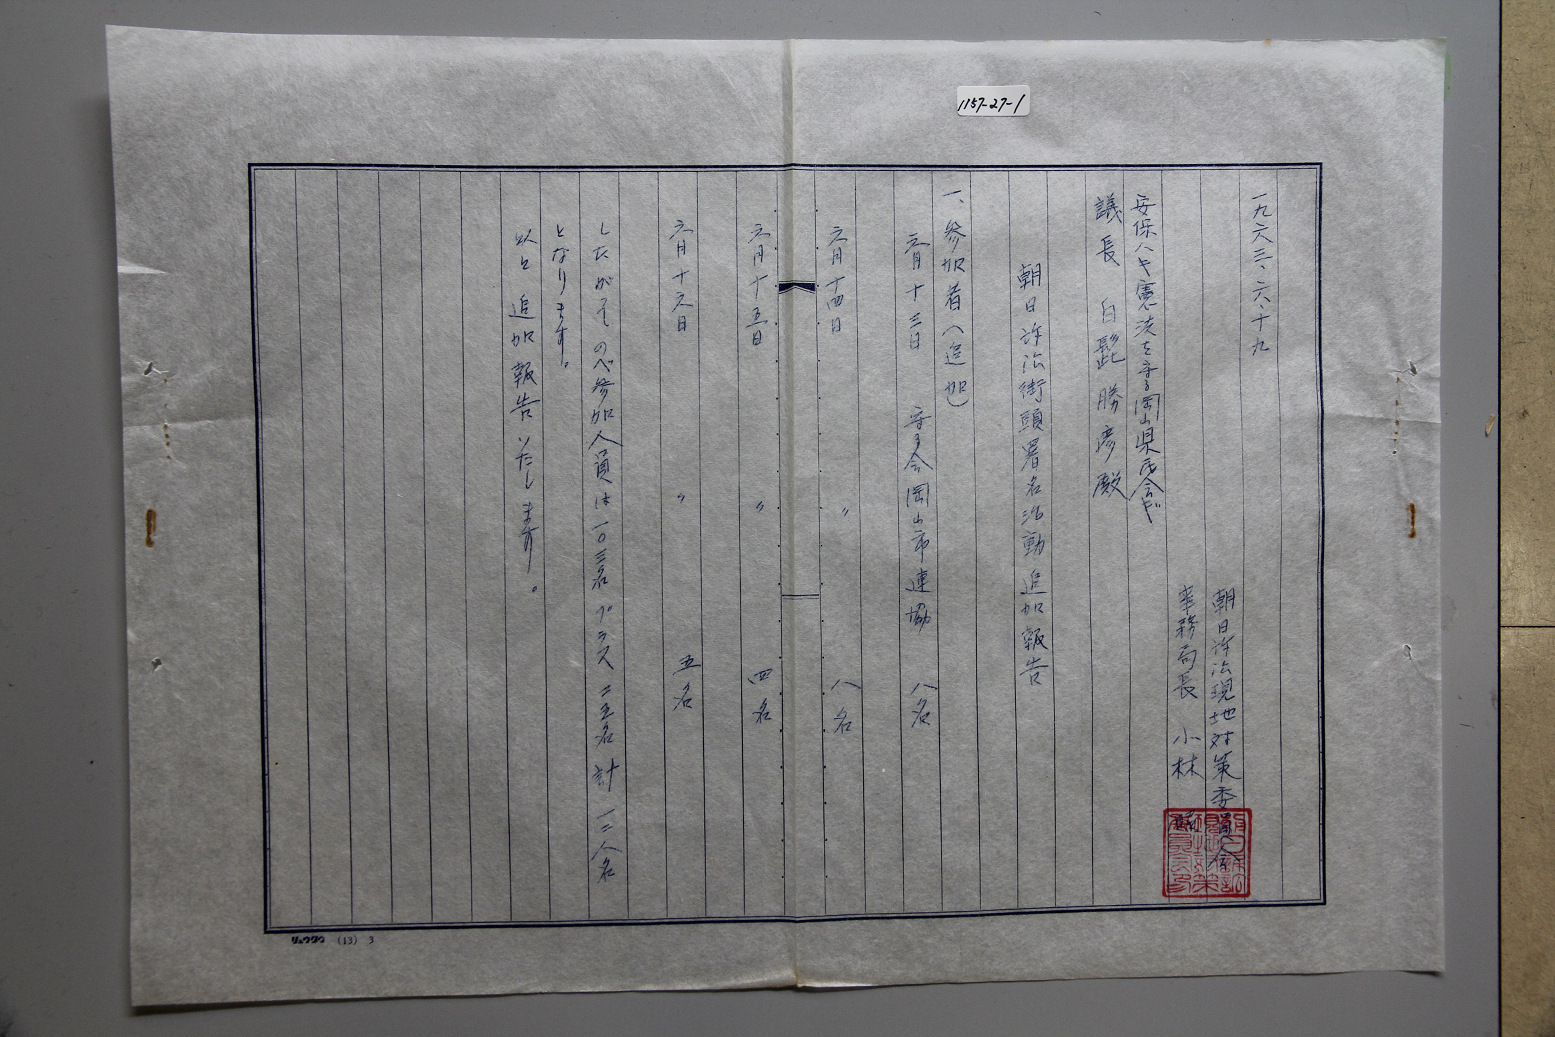 1157-27-1
一九六三、六、十九
朝日訴訟現地対策委員会
事務局長 小林
安保ハキ憲法を守る岡山県民会ギ
議長 白髭勝彦殿
朝日訴訟街頭署名活動追加報告
一、参加者(追加)
六月十三日 守る会岡山市連協 八名
六月十四日 〃 八名
六月十五日 〃 四名
六月十六日 〃 五名
したがってのべ参加人員は一〇三名プラス二五名計一二八名
となります。
以上追加報告いたします。
リュウグウ (13) 3